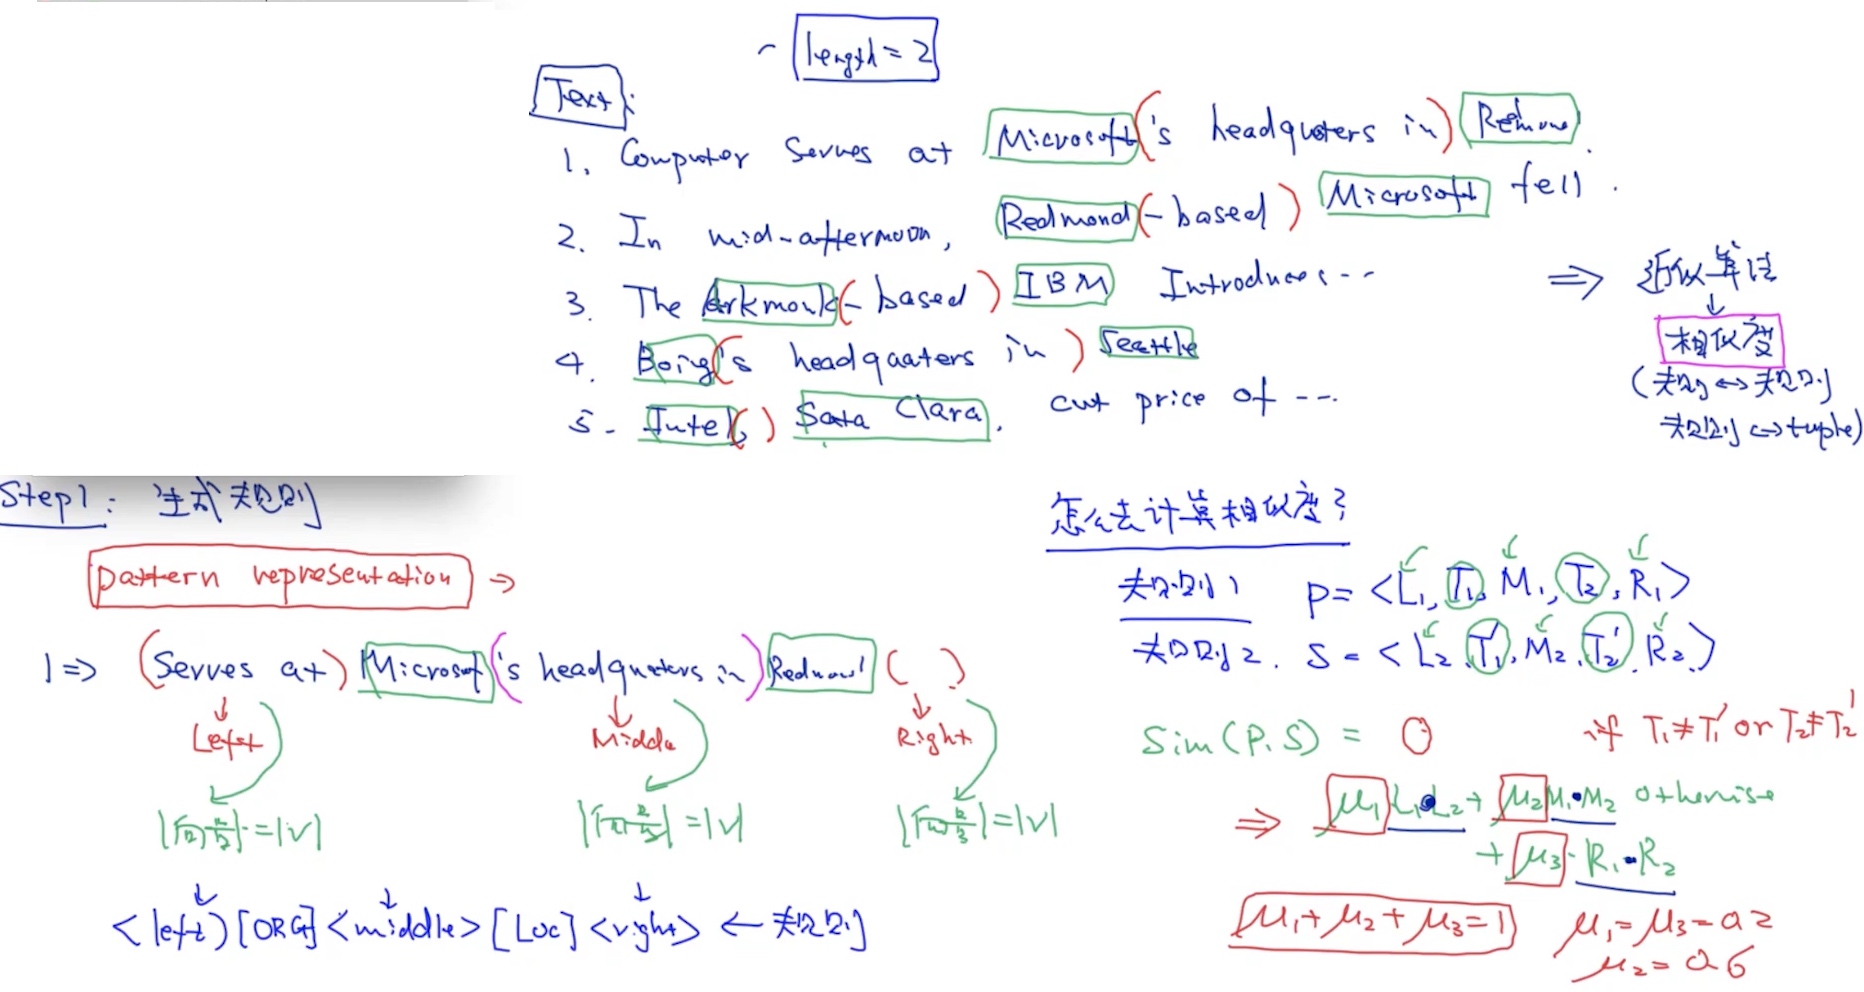 length = 2
Text:
1. Computer Serves at Microsoft 's headquters in Redmond.
2. In mid-afternoon, Redmond - based Microsoft fell.
3. The Arkmonk - based IBM Introduces ...
4. Boing 's headquaters in Seattle
5. Intel, Sata Clara, cut price of ...
⇒ 近似算法
↓
相似度
(规则 ↔ 规则
规则 ↔ tuple)
Step1: 生成规则
pattern representation →
1 ⇒ (Serves at) Microsoft ('s headquters in) Redmond ( )
Left Middle Right
=|V| =|V| =|V|
<left> [ORG] <middle> [LOC] <right> ← 规则
怎么去计算相似度?
规则1 P = <L₁, T₁, M₁, T₂, R₁>
规则2. S = <L₂, T₁', M₂, T₂', R₂>
Sim(P.S) = 0 if T₁≠T₁' or T₂≠T₂'
⇒ μ₁ L₁•L₂ + μ₂ M₁•M₂ othenise
+ μ₃· R₁•R₂
μ₁+μ₂+μ₃=1 μ₁=μ₃=0.2
μ₂=0.6